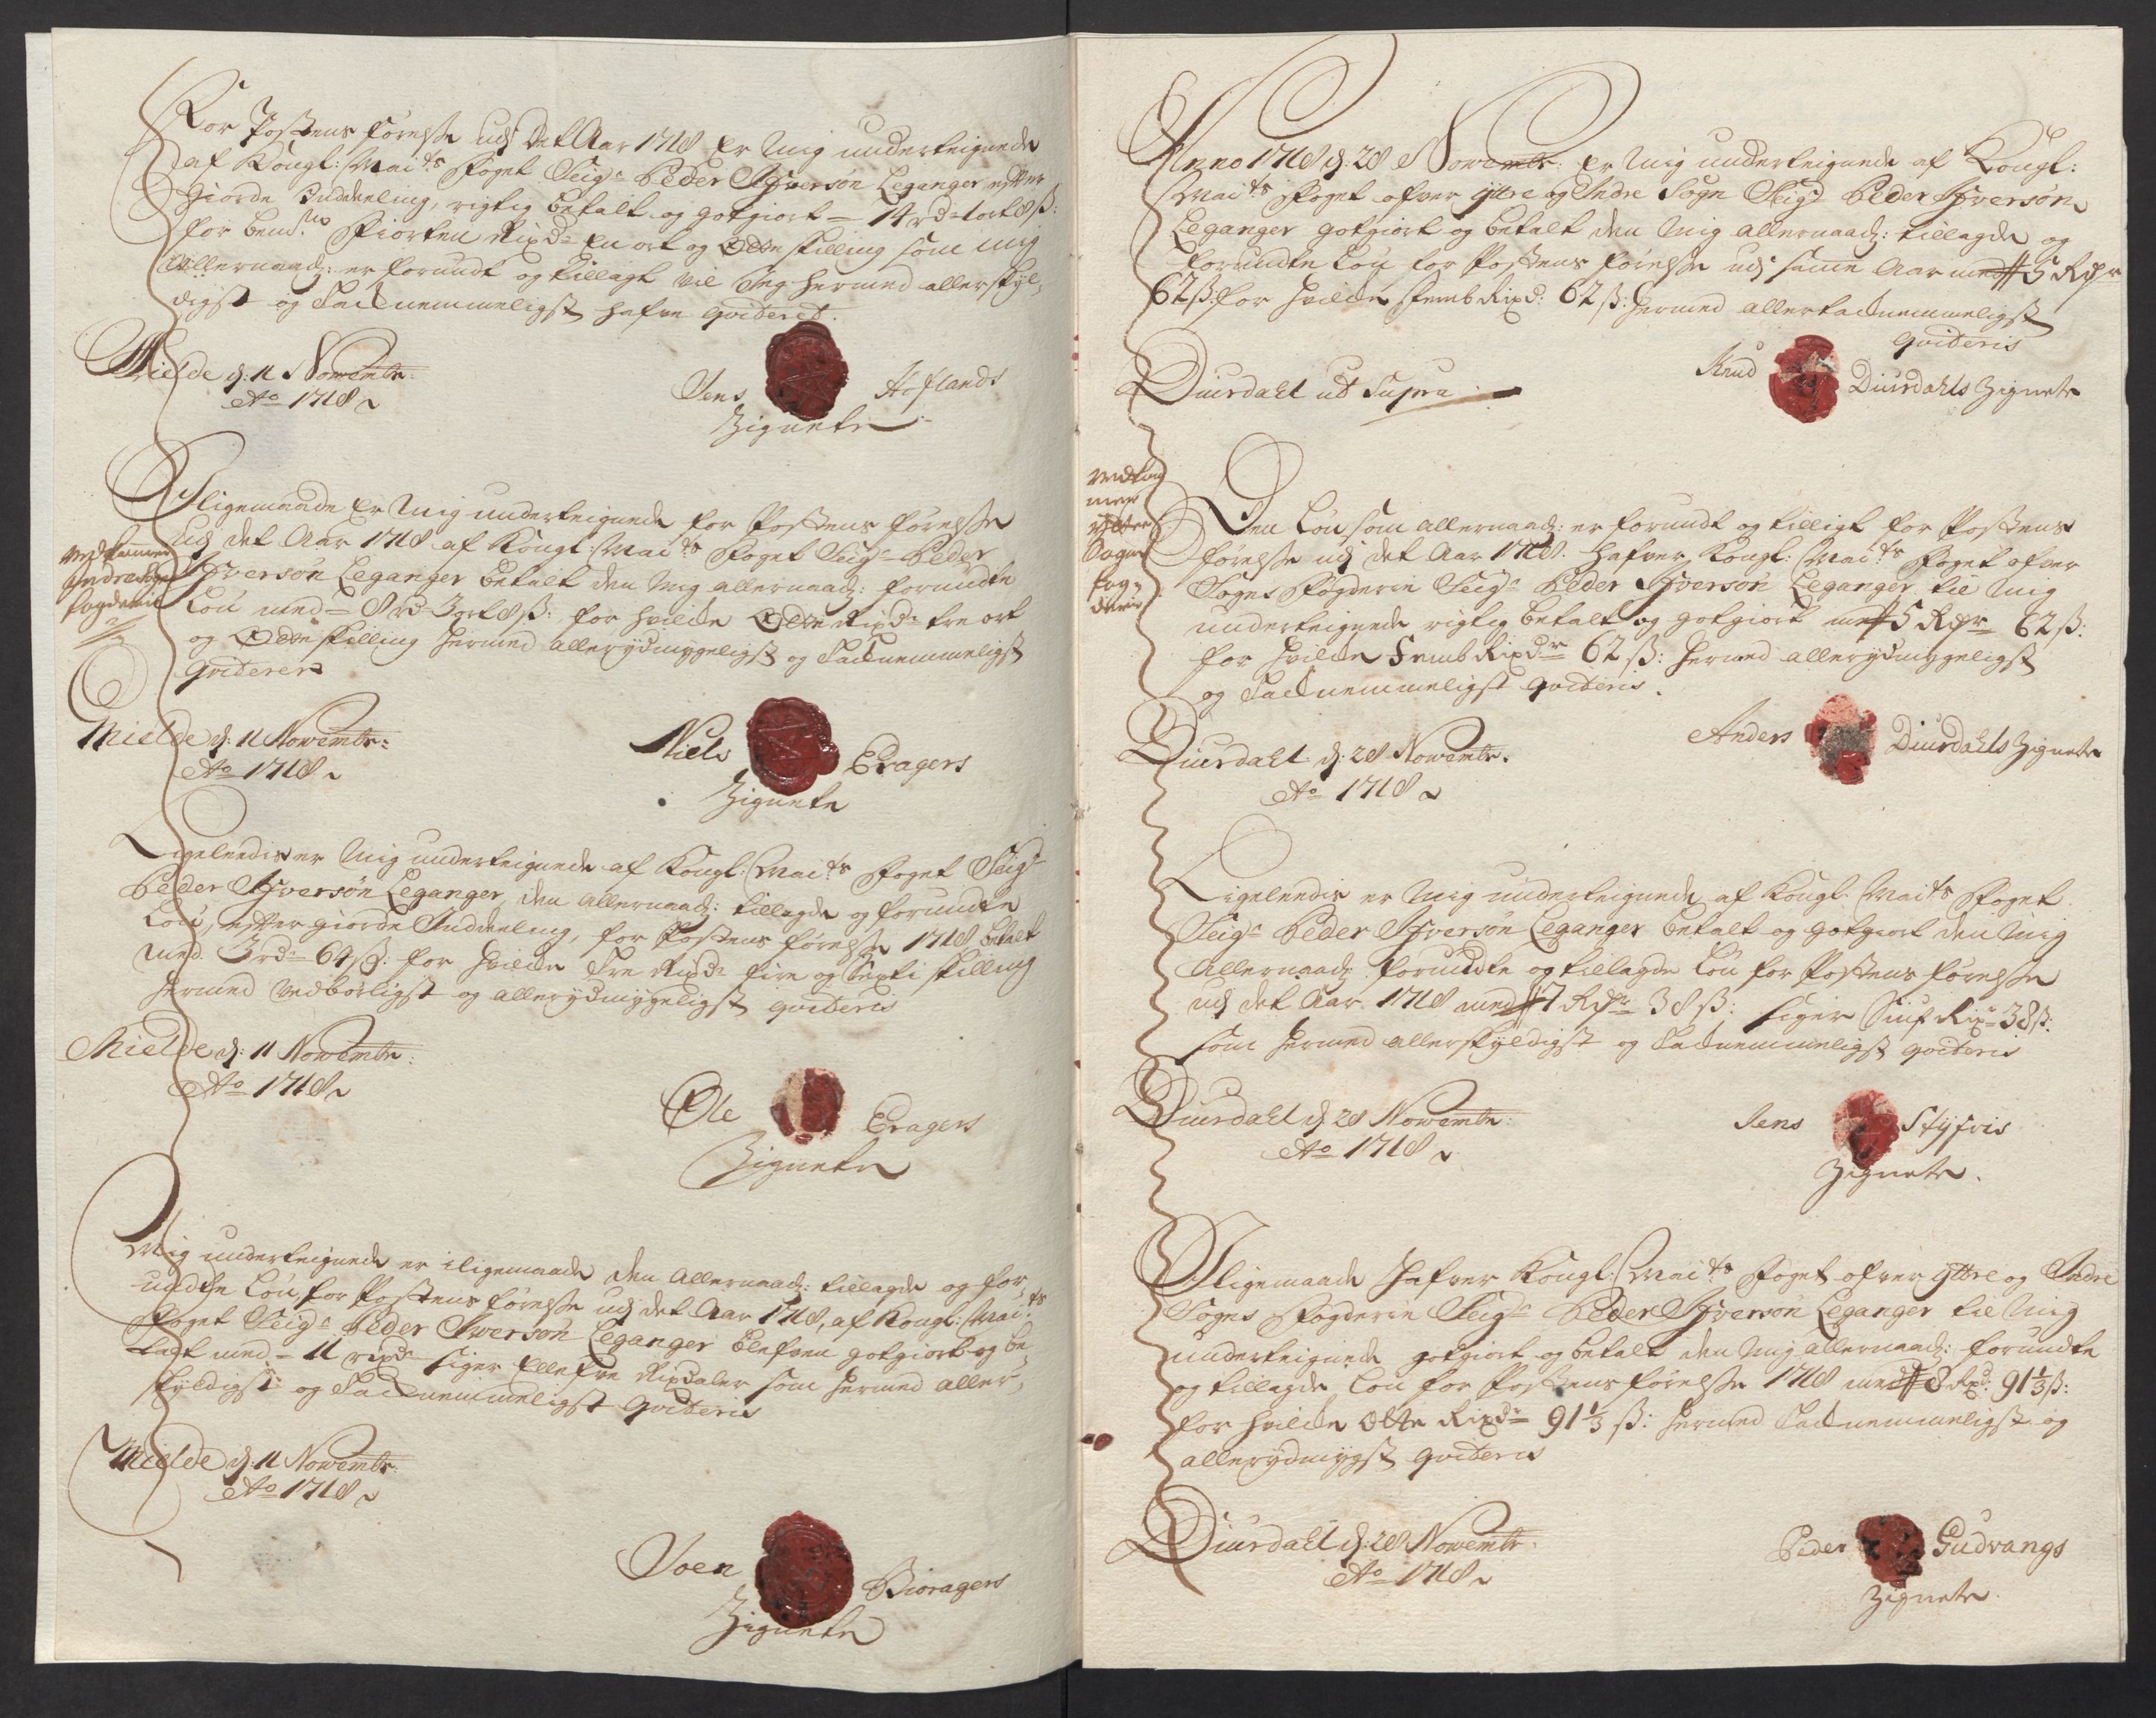 For Postens førelsse udj Det Aar 1718 Er Mig underteignede
af Kongl: Mai:ts Foget Seig:r Peder Ifversøn Leganger efter
giorde Inddeeling, rigtig betalt og gotgiort – 14 rd – 1 ort 8 ß:
for bem:te Fiorten Rixd:r En ort og Otte skilling som mig
allernaad: er forundt og tillagt vil Jeg hermed allerskyl-
digst og Tacknemmeligst hafve qviteret.
Mielde d: 11 Novembr:
A:o 1718
Jens Hoflands
Zignete
I ligemaade Er Mig underteignede for Postens førelsse
udj det Aar 1718 af Kongl: Mai:ts Foget Seig:r Peder
Vedkommer
Indre Sogns
fogderie
Ifversøn Leganger betalt den Mig allernaad: forundte
Løn med – 8 rd 3 ort 8 ß: for hvilcke Otte Rixd:r tre ort
og Otte skilling hermed allerydmygeligst og Tacknemmeligst
qviterer
Mielde d: 11 Novembr:
A:o 1718
Niels Cragers
Zignete
Ligeleedis er Mig underteignede af Kongl: Mai:ts Foget Seig:r
Peder Ifversøn Leganger, den allernaad: tillagde og forundte
Løn, efter giorde Inddeeling, for Postens førelsse 1718 betalt
med 3 rd:r 64 ß: for hvilcke Tre Rixd:r fire og Sexti skilling
hermed vedbørligst og allerydmygeligst qviteris
Mielde d: 11 Novembr:
A:o 1718
Ole Cragers
Zignete
Mig underteignede er iligemaade den allernaad: tillagde og for-
undte Løn, for Postens førelsse udj det Aar 1718, af Kongl: Mai:ts
Foget Seig:r Peder Iversøn Leganger blefven gotgiort og be-
talt med – 11 rixd:r siger Ellefve Rixdaler som hermed aller-
skyldigst og Tacknemmeligst qviteris
Mielde d: 11 Novembr:
A:o 1718
Joen Bioragers
Zignete
Anno 1718 d: 28 Novembr: Er Mig underteignede af Kongl:
Mai:ts Foget ofver yttre og Indre Sogn Seig:r Peder Ifversøn
Leganger gotgiort og betalt den Mig allernaad: tillagde og
forundte Løn for Postens førelsse udj samme Aar med 5 Rdr
62 ß: for hvilcke femb Rixd: 62 ß: hermed allertacknemmeligst
qviteris
Diurdahl ut Supra
Knud Diurdahls Zignete
Vedkom
mer
ytter
Sogns
fog-
derie
Den Løn som allernaad: er forundt og tilligt for Postens
førelsse udj det Aar 1718. hafver Kongl: Mai:ts Foget ofver
Sogns Fogderie Seig:r Peder Ifversøn Leganger til Mig
underteignede rigtig betalt og gotgiort med 5 Rdr 62 ß:
for hvilcke Femb Rixd:r 62 ß: hermed allerydmygeligst
og Tacknemmeligst qviteris.
Diurdahl d: 28 Novembr.
A:o 1718
Anders Diurdahls Zignete
Ligeleedis er Mig underteignede af Kongl: Mai:ts Foget
Seig:r Peder Ifversøn Leganger betalt og gotgiort den Mig
Allernaad: forundte og tillagde Løn for Postens førelsse
udj det Aar 1718 med 7 Rdr 38 ß: siger Siuf Rix:r 38 ß:
som hermed allerskyldigst og Tacknemmeligst qviteris
Diurdahl d 28 Novembr:
A:o 1718
Jens Styfvis
Zignete.
I ligemaade Hafver Kongl: Mai:ts Foget ofver yttre og Indre
Sogns Fogderie Seig:r Peder Ifversøn Leganger til Mig
underteignede gotgiort og betalt den Mig allernaad: forundte
og tillagde Løn for Postens førelsse 1718 med 8 Rxd: 91⅓ ß:
for hvilcke Otte Rixd:r 91⅓ ß: hermed Tacknemmeligst og
allerydmygst qviteris
Diurdahl d: 28 Novembr.
A:o 1718
Peder Gudvangs
Zignete.